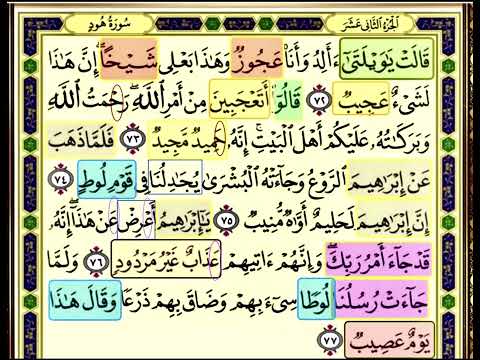 سُورَةُ هُودٍ
الجُزءُ الثَّانِي عَشَرَ
قَالَتْ يَٰوَيْلَتَىٰٓ ءَأَلِدُ وَأَنَا۠ عَجُوزٌ وَهَٰذَا بَعْلِى شَيْخًا ۖ إِنَّ هَٰذَا
لَشَىْءٌ عَجِيبٌ ٧٢ قَالُوٓا۟ أَتَعْجَبِينَ مِنْ أَمْرِ ٱللَّهِ ۖ رَحْمَتُ ٱللَّهِ
وَبَرَكَٰتُهُۥ عَلَيْكُمْ أَهْلَ ٱلْبَيْتِ ۚ إِنَّهُۥ حَمِيدٌ مَّجِيدٌ ٧٣ فَلَمَّا ذَهَبَ
عَنْ إِبْرَٰهِيمَ ٱلرَّوْعُ وَجَآءَتْهُ ٱلْبُشْرَىٰ يُجَٰدِلُنَا فِى قَوْمِ لُوطٍ ٧٤
إِنَّ إِبْرَٰهِيمَ لَحَلِيمٌ أَوَّٰهٌ مُّنِيبٌ ٧٥ يَٰٓإِبْرَٰهِيمُ أَعْرِضْ عَنْ هَٰذَآ ۖ إِنَّهُۥ
قَدْ جَآءَ أَمْرُ رَبِّكَ ۖ وَإِنَّهُمْ ءَاتِيهِمْ عَذَابٌ غَيْرُ مَرْدُودٍ ٧٦ وَلَمَّا
جَآءَتْ رُسُلُنَا لُوطًا سِىٓءَ بِهِمْ وَضَاقَ بِهِمْ ذَرْعًا وَقَالَ هَٰذَا
يَوْمٌ عَصِيبٌ ٧٧